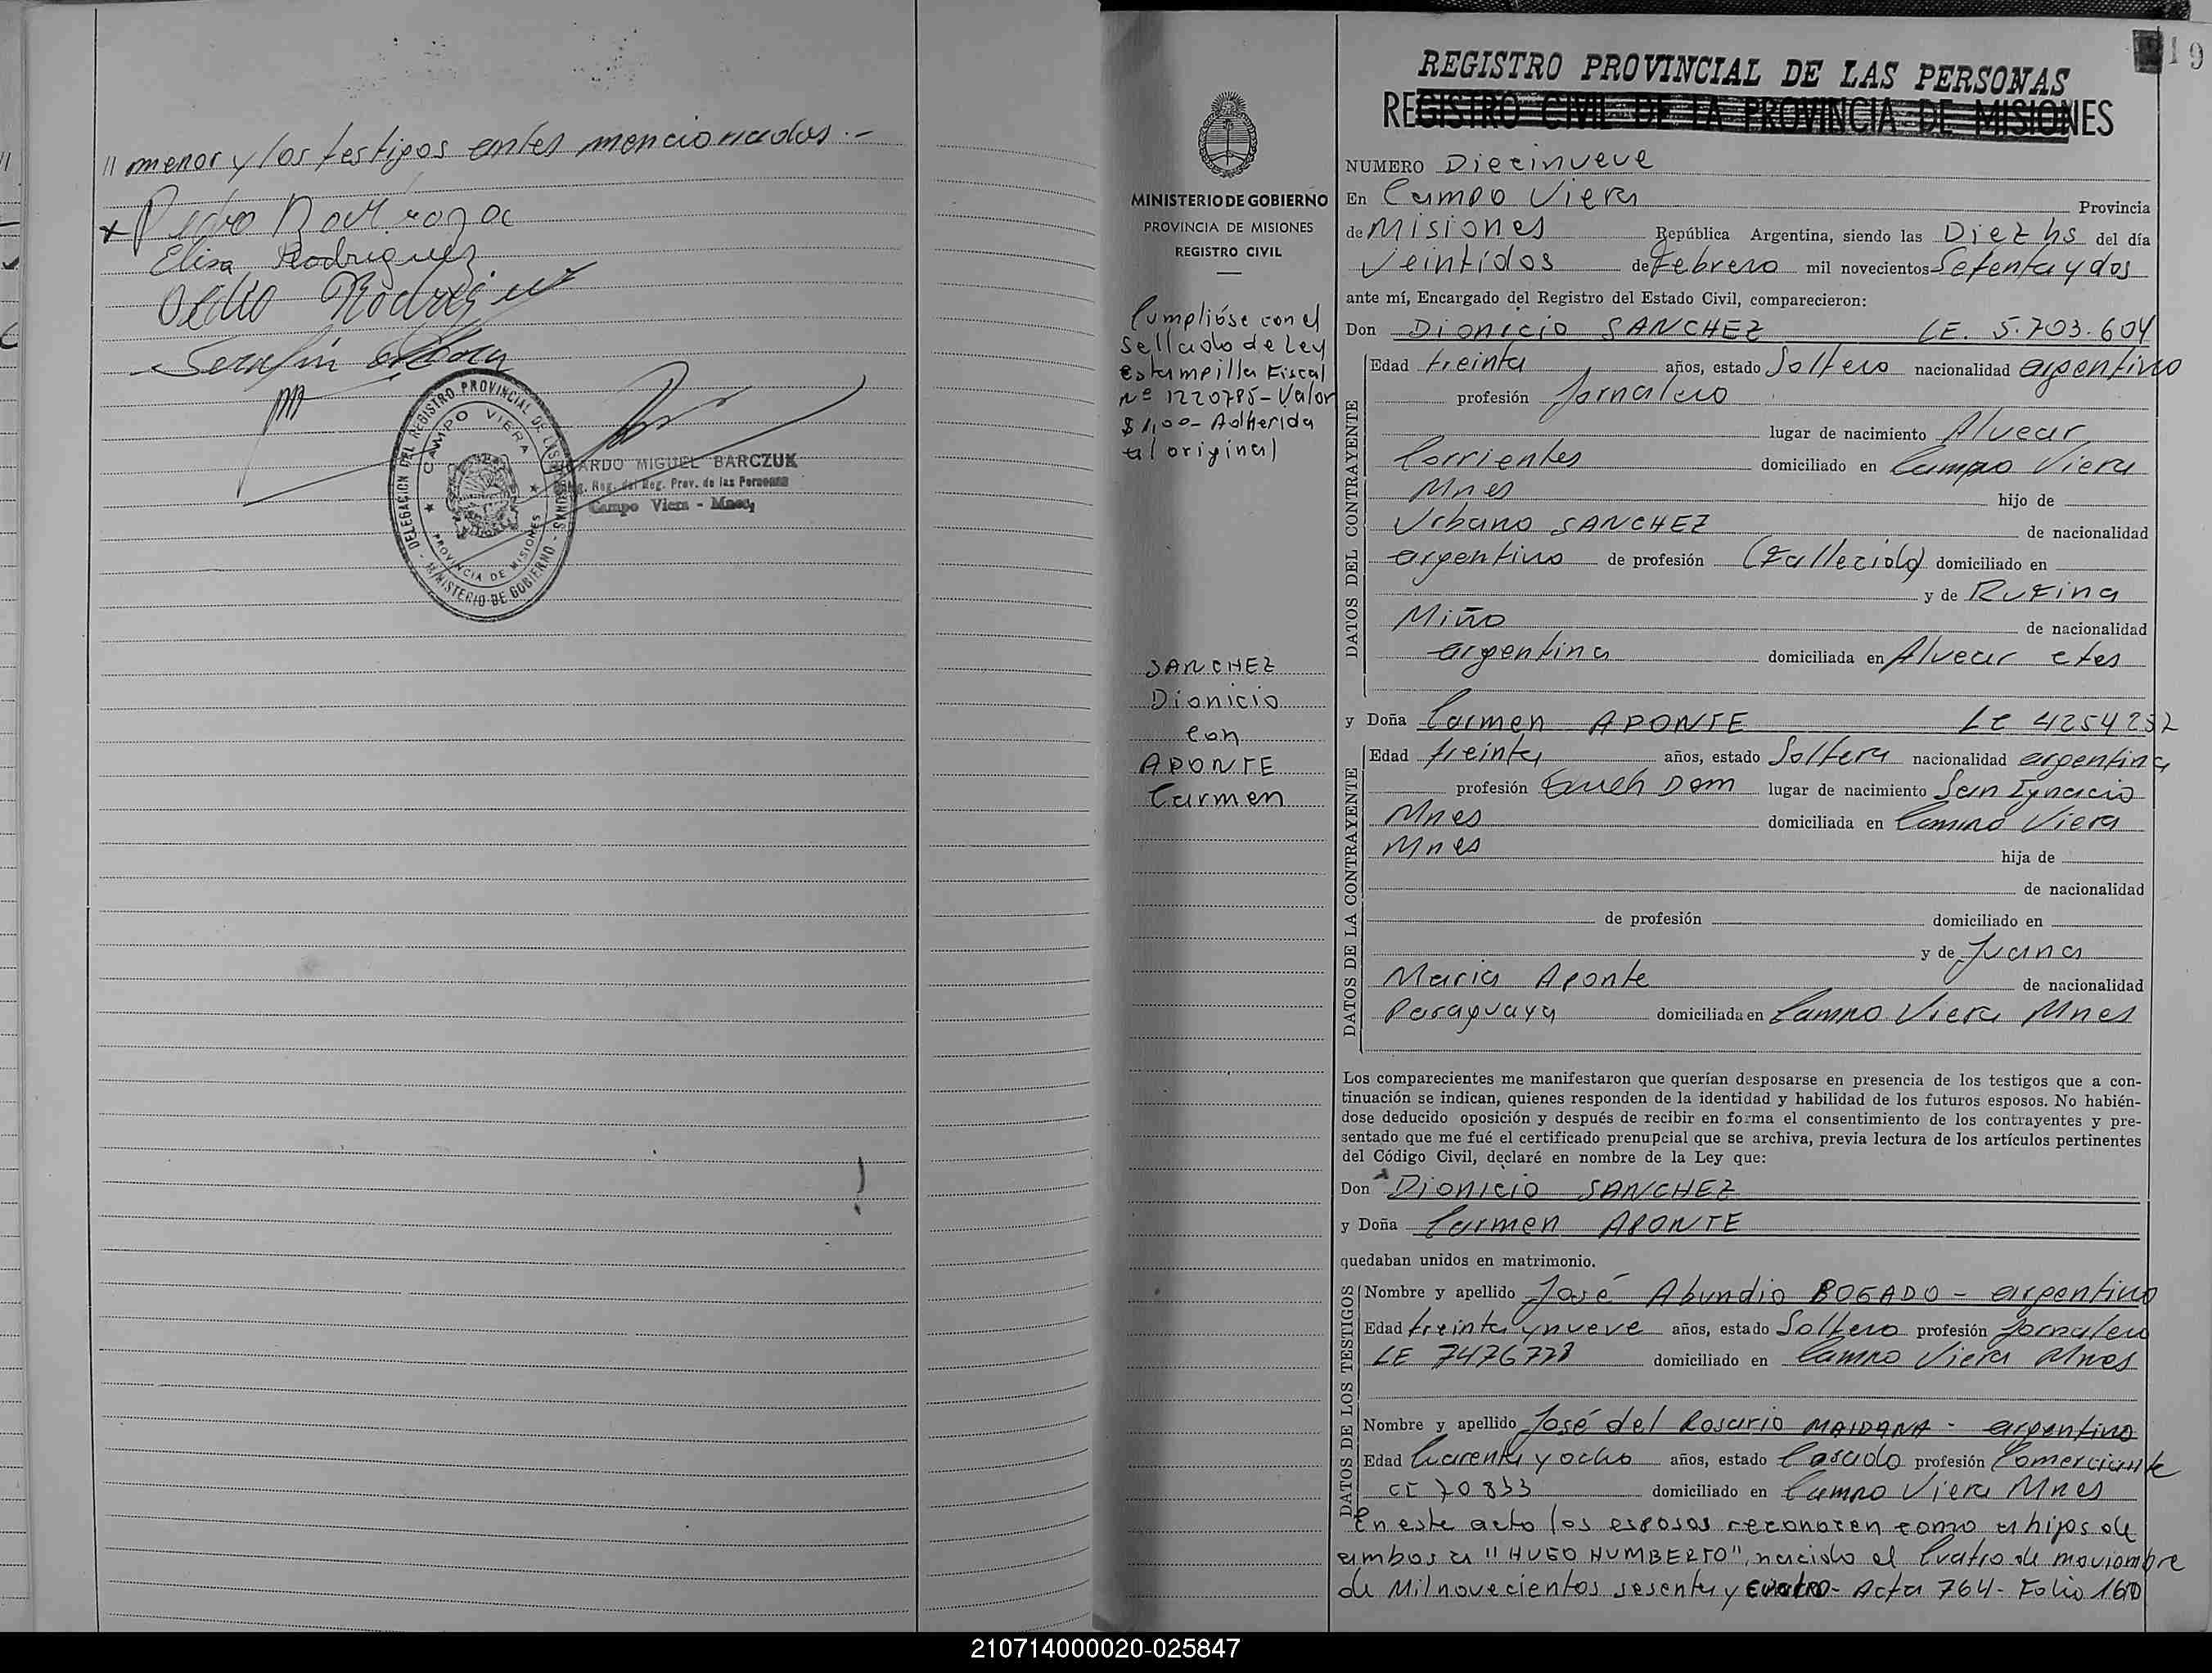 // menor y los testigos antes mencionados.-
x Pedro
Elisa Rodriguez
Serafin
DELEGACION DEL REGISTRO PROVINCIAL DE LAS PERSONAS - MINISTERIO DE GOBIERNO -
CAMPO VIERA
PROVINCIA DE MISIONES
RICARDO MIGUEL BARCZUK
Reg. del Reg. Prov. de las Personas
Campo Viera - Mnes,
MINISTERIO DE GOBIERNO
PROVINCIA DE MISIONES
REGISTRO CIVIL
Cumplióse con el
sellado de Ley
estampilla Fiscal
Nº 1220785 - Valor
$ 1,00 - Adherida
al original
SANCHEZ
Dionicio
con
APONTE
Carmen
19
REGISTRO PROVINCIAL DE LAS PERSONAS
REGISTRO CIVIL DE LA PROVINCIA DE MISIONES
NUMERO Diecinueve
En Campo Viera Provincia
de Misiones República Argentina, siendo las Diez hs del día
Veintidos de Febrero mil novecientos Setenta y dos
ante mí, Encargado del Registro del Estado Civil, comparecieron:
Don Dionicio SANCHEZ LE. 5.703.604
DATOS DEL CONTRAYENTE
Edad treinta años, estado Soltero nacionalidad argentino
profesión Jornalero
lugar de nacimiento Alvear
Corrientes domiciliado en Campo Viera
Mnes hijo de
Urbano SANCHEZ de nacionalidad
argentino de profesión (Fallecido) domiciliado en
y de Rufina
Miño de nacionalidad
argentina domiciliada en Alvear ctes
y Doña Carmen APONTE LC 4254252
DATOS DE LA CONTRAYENTE
Edad treinta años, estado Soltera nacionalidad argentina
profesión Dom lugar de nacimiento San Ignacio
Mnes domiciliada en Campo Viera
Mnes hija de
de nacionalidad
de profesión domiciliado en
y de Juana
Maria Aponte de nacionalidad
Paraguaya domiciliada en Campo Viera Mnes
Los comparecientes me manifestaron que querían desposarse en presencia de los testigos que a con-
tinuación se indican, quienes responden de la identidad y habilidad de los futuros esposos. No habién-
dose deducido oposición y después de recibir en forma el consentimiento de los contrayentes y pre-
sentado que me fué el certificado prenupcial que se archiva, previa lectura de los artículos pertinentes
del Código Civil, declaré en nombre de la Ley que:
Don Dionicio SANCHEZ
y Doña Carmen APONTE
quedaban unidos en matrimonio.
DATOS DE LOS TESTIGOS
Nombre y apellido José Abundio BOGADO - argentino
Edad treinta y nueve años, estado Soltero profesión Jornalero
LE 7476778 domiciliado en Campo Viera Mnes
Nombre y apellido José del Rosario MAIDANA - argentino
Edad Cuarenta y ocho años, estado Casado profesión Comerciante
CI 70833 domiciliado en Campo Viera Mnes
En este acto los esposos reconocen como a hijos de
ambos a "HUGO HUMBERTO", nacido el Cuatro de moviembre
de Mil novecientos sesenta y cuatro - Acta 764 - Folio 160
210714000020-025847